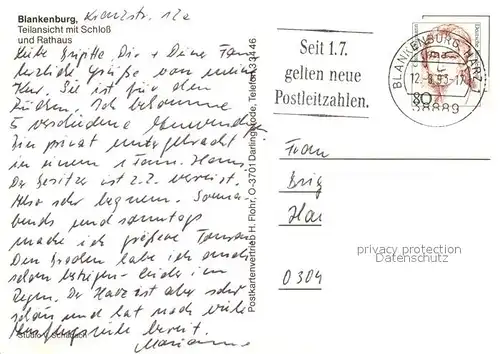 Blankenburg, Kranzstr. 12a
Teilansicht mit Schloß
und Rathaus
Liebe Brigitte, Dir + Deiner Fam.
herzliche Grüße von meiner
Kur. Sie ist für den
Rücken. Ich bekomme
5 verschiedene Anwendg.
Bin privat untergebracht
in einem 1 Fam. Haus.
Der Besitzer ist z.Z. verreist.
Also sehr bequem. Sonna-
bends und sonntags
mache ich größere Touren.
Den Brocken habe ich auch
schon bestiegen - leider im
Regen. Der Harz ist aber sehr
schön und hat noch viele
bereit.
Marianne
Postkartenvertrieb H. Flohr, O-3701 Darlingerode, Telefon 3 4446
Seit 1.7.
gelten neue
Postleitzahlen.
BLANKENBURG, HARZ
12.-8.93-17
38889
80
Frau
Brig
Hai
O 304
privacy protection
Datenschutz